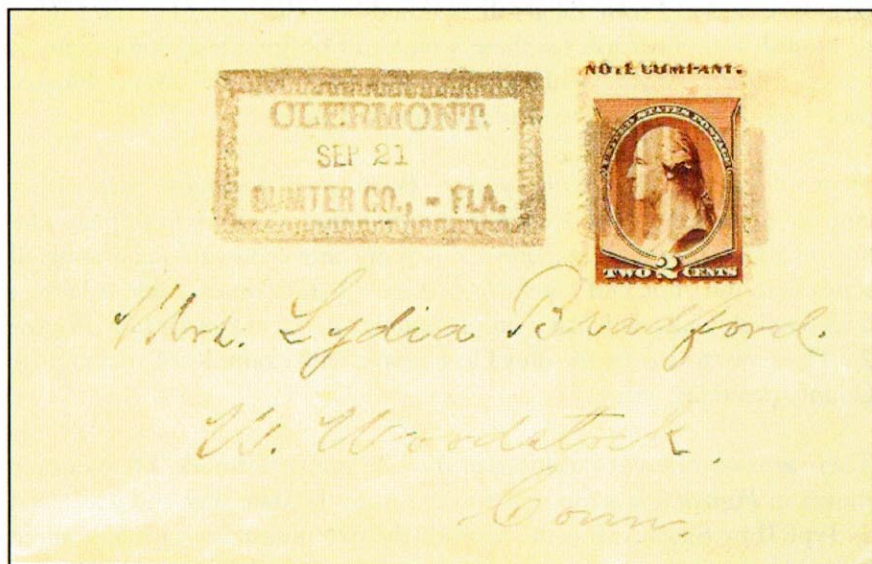 CLERMONT.
SEP 21
SUMTER CO., - FLA.
NOTE COMPANY.
UNITED STATES POSTAGE
TWO 2 CENTS
Mrs. Lydia Bradford.
W. Woodstock,
Conn.